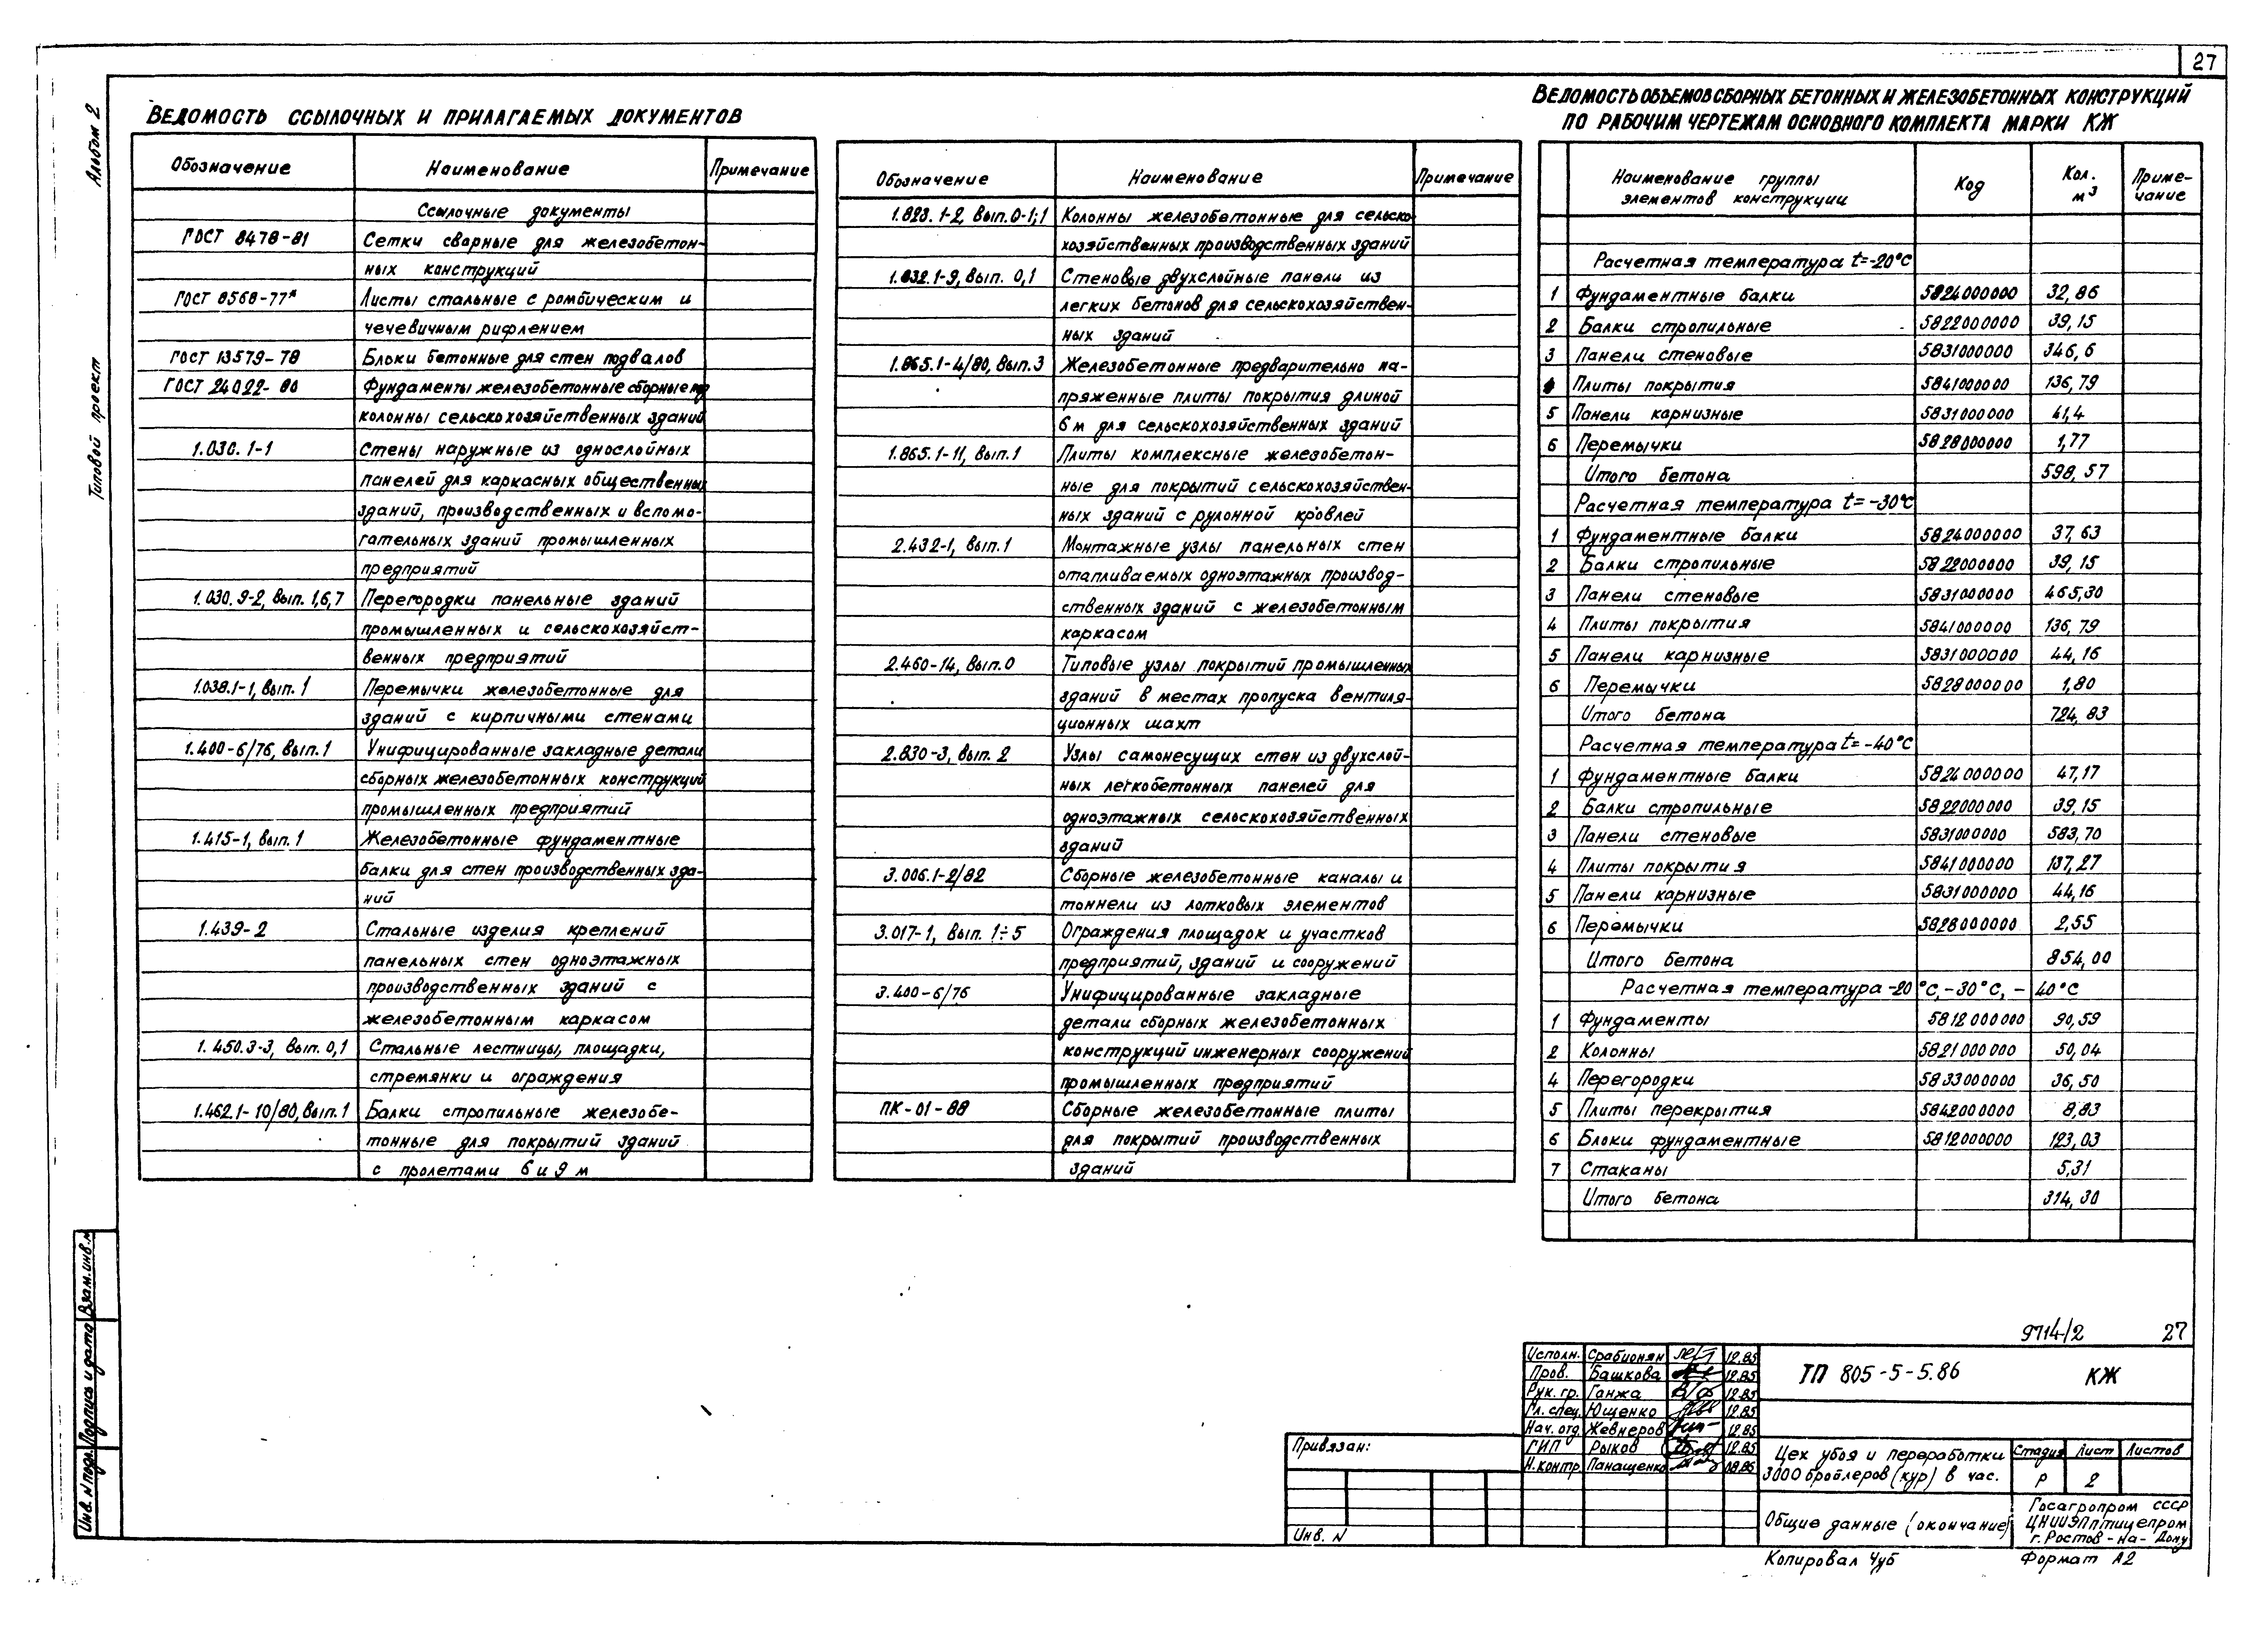 27
Альбом 2
Типовой проект
Ведомость ссылочных и прилагаемых документов
Обозначение Наименование Примечание
Ссылочные документы
ГОСТ 8478-81 Сетки сварные для железобетон-
ных конструкций
ГОСТ 8568-77* Листы стальные с ромбическим и
чечевичным рифлением
ГОСТ 13579-78 Блоки бетонные для стен подвалов
ГОСТ 24022-80 Фундаменты железобетонные сборные под
колонны сельскохозяйственных зданий
1.030.1-1 Стены наружные из однослойных
панелей для каркасных общественных
зданий, производственных и вспомо-
гательных зданий промышленных
предприятий
1.030.9-2, Вып. 1,6,7 Перегородки панельные зданий
промышленных и сельскохозяйст-
венных предприятий
1.038.1-1, вып. 1 Перемычки железобетонные для
зданий с кирпичными стенами
1.400-6/76, Вып. 1 Унифицированные закладные детали
сборных железобетонных конструкций
промышленных предприятий
1.415-1, вып. 1 Железобетонные фундаментные
балки для стен производственных зда-
ний
1.439-2 Стальные изделия креплений
панельных стен одноэтажных
производственных зданий с
железобетонным каркасом
1.450.3-3, Вып. 0,1 Стальные лестницы, площадки,
стремянки и ограждения
1.462.1-10/80, Вып. 1 Балки стропильные железобе-
тонные для покрытий зданий
с пролетами 6 и 9 м
Обозначение Наименование Примечание
1.823.1-2, Вып. 0-1;1 Колонны железобетонные для сельско-
хозяйственных производственных зданий
1.832.1-9, Вып. 0,1 Стеновые двухслойные панели из
легких бетонов для сельскохозяйствен-
ных зданий
1.865.1-4/80, Вып. 3 Железобетонные предварительно на-
пряженные плиты покрытия длиной
6 м для сельскохозяйственных зданий
1.865.1-11, вып. 1 Плиты комплексные железобетон-
ные для покрытий сельскохозяйствен-
ных зданий с рулонной кровлей
2.432-1, Вып. 1 Монтажные узлы панельных стен
отапливаемых одноэтажных производ-
ственных зданий с железобетонным
каркасом
2.460-14, Вып. 0 Типовые узлы покрытий промышленных
зданий в местах пропуска вентиля-
ционных шахт
2.830-3, вып. 2 Узлы самонесущих стен из двухслой-
ных легкобетонных панелей для
одноэтажных сельскохозяйственных
зданий
3.006.1-2/82 Сборные железобетонные каналы и
тоннели из лотковых элементов
3.017-1, Вып. 1÷5 Ограждения площадок и участков
предприятий, зданий и сооружений
3.400-6/76 Унифицированные закладные
детали сборных железобетонных
конструкций инженерных сооружений
промышленных предприятий
ПК-01-88 Сборные железобетонные плиты
для покрытий производственных
зданий
Ведомость объемов сборных бетонных и железобетонных конструкций
по рабочим чертежам основного комплекта марки КЖ
Наименование группы элементов конструкции Код Кол. м³ Приме-чание
Расчетная температура t=-20°С
1 Фундаментные балки 5824000000 32,86
2 Балки стропильные 5822000000 39,15
3 Панели стеновые 5831000000 346,6
4 Плиты покрытия 5841000000 136,79
5 Панели карнизные 5831000000 41,4
6 Перемычки 5828000000 1,77
Итого бетона 598,57
Расчетная температура t=-30°С
1 Фундаментные балки 5824000000 37,63
2 Балки стропильные 5822000000 39,15
3 Панели стеновые 5831000000 465,30
4 Плиты покрытия 5841000000 136,79
5 Панели карнизные 5831000000 44,16
6 Перемычки 5828000000 1,80
Итого бетона 724,83
Расчетная температура t=-40°С
1 Фундаментные балки 5824000000 47,17
2 Балки стропильные 5822000000 39,15
3 Панели стеновые 5831000000 583,70
4 Плиты покрытия 5841000000 137,27
5 Панели карнизные 5831000000 44,16
6 Перемычки 5828000000 2,55
Итого бетона 854,00
Расчетная температура -20°С, -30°С, -40°С
1 Фундаменты 5812000000 90,59
2 Колонны 5821000000 50,04
4 Перегородки 5833000000 36,50
5 Плиты перекрытия 5842000000 8,83
6 Блоки фундаментные 5812000000 123,03
7 Стаканы 5,31
Итого бетона 314,30
9714/2 27
Исполн. Срабионян 12.85
Пров. Башкова 12.85
Рук. гр. Ганжа 12.85
Гл. спец. Ющенко 12.85
Нач. отд. Жевнеров 12.85
ГИП Рыков 12.85
Н. контр. Панащенко 08.86
ТП 805-5-5.86 КЖ
Цех убоя и переработки
3000 бройлеров (кур) в час.
Стадия Лист Листов
Р 2
Общие данные (окончание)
Госагропром СССР
ЦНИИЭПптицепром
г. Ростов-на-Дону
Привязан:
Инв. N
Копировал Чуб Формат А2
Взам. инв. N
Подпись и дата
Инв. N подл.